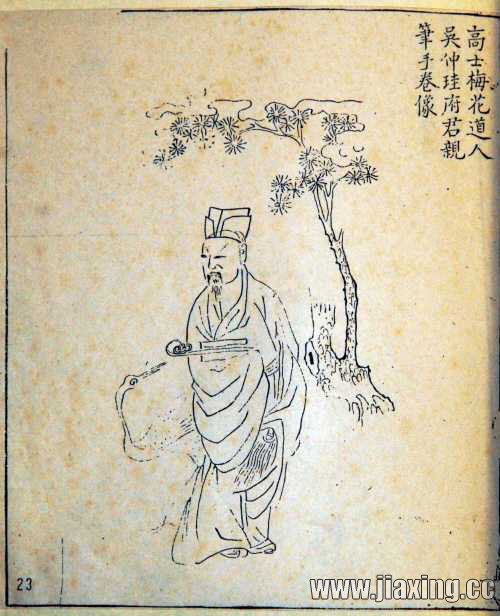 高士梅花道人
吳仲珪府君親
筆手卷像
23
www.jiaxing.cc